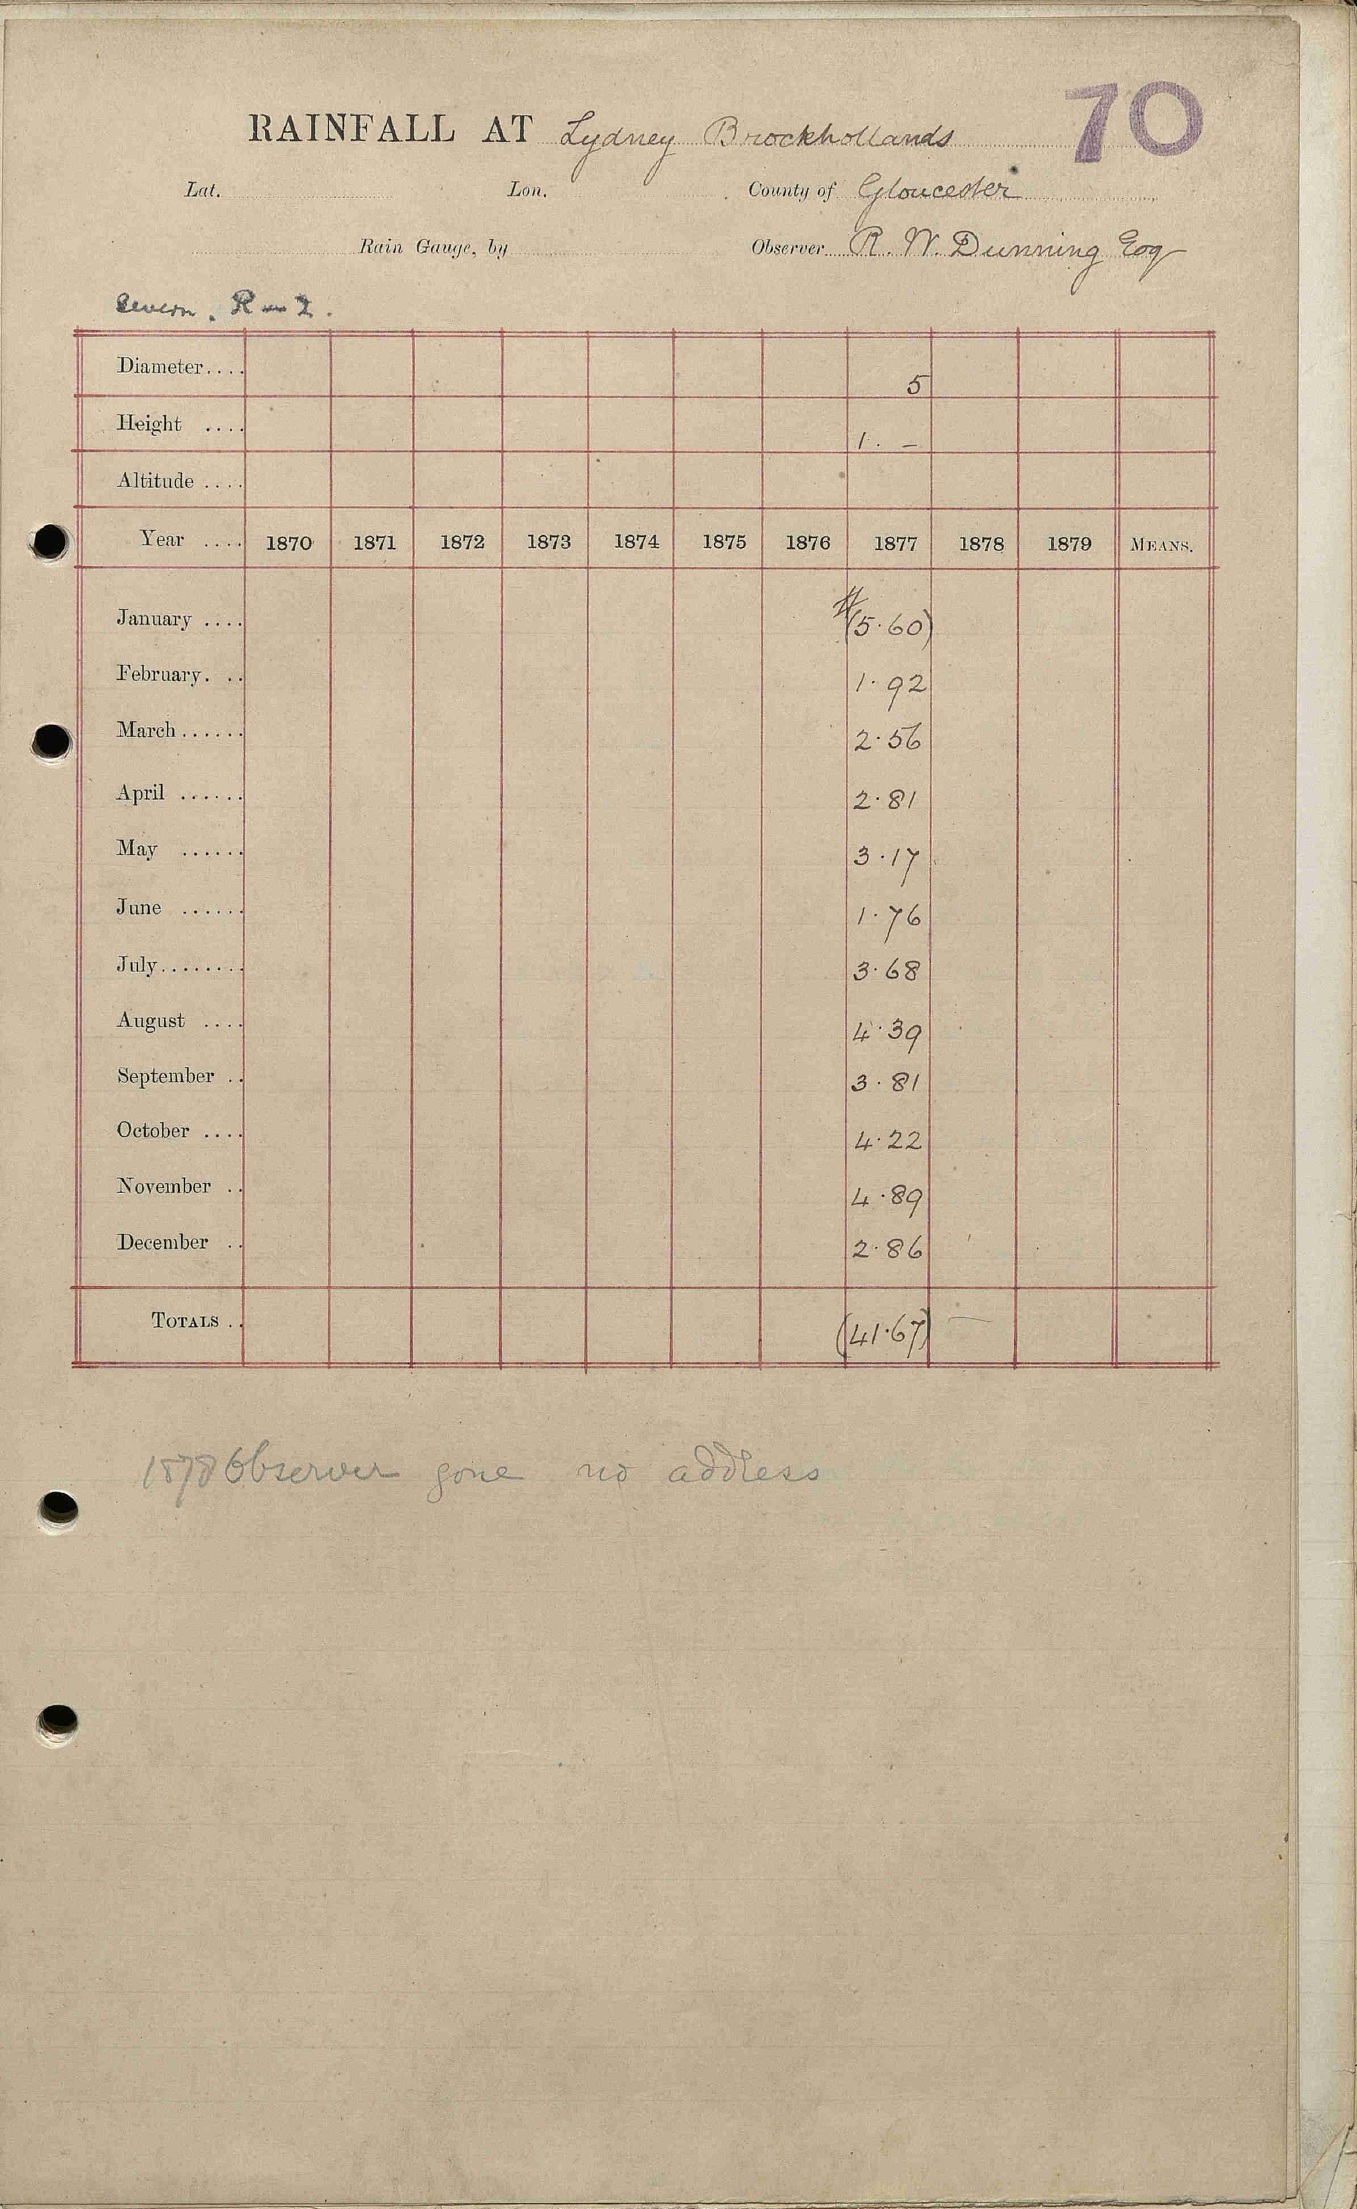 70
RAINFALL AT Lydney Brockhollands
Lat. Lon. County of Gloucester
Rain Gauge, by Observer R. W. Dunning Esq
Severn. R-2.
Diameter.... 5
Height .... 1. -
Altitude ....
Year .... 1870 1871 1872 1873 1874 1875 1876 1877 1878 1879 MEANS.
January .... #(5.60)
February. .. 1.92
March ...... 2.56
April ...... 2.81
May ...... 3.17
June ...... 1.76
July........ 3.68
August .... 4.39
September .. 3.81
October .... 4.22
November .. 4.89
December .. 2.86
TOTALS .. (41.67) —
1878 Observer gone no address